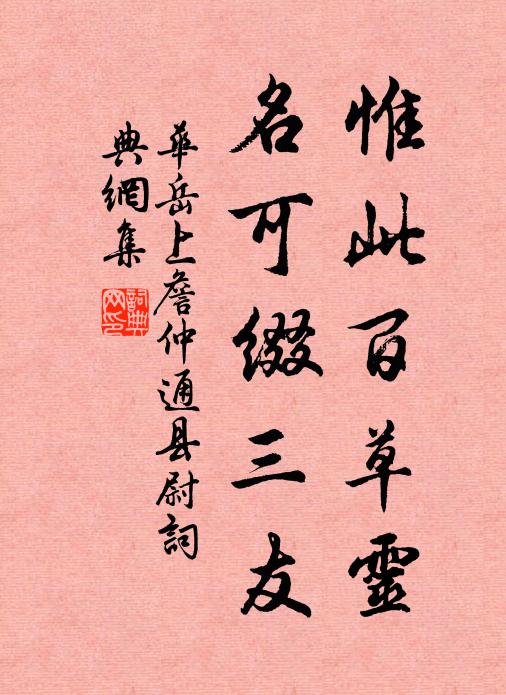 惟此百草靈
名可綴三友
華岳上詹仲通县尉詞
典網集
詞典
网印